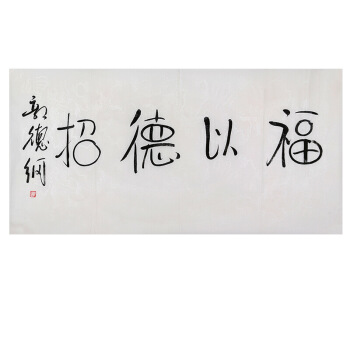 福以德招
郭德纲